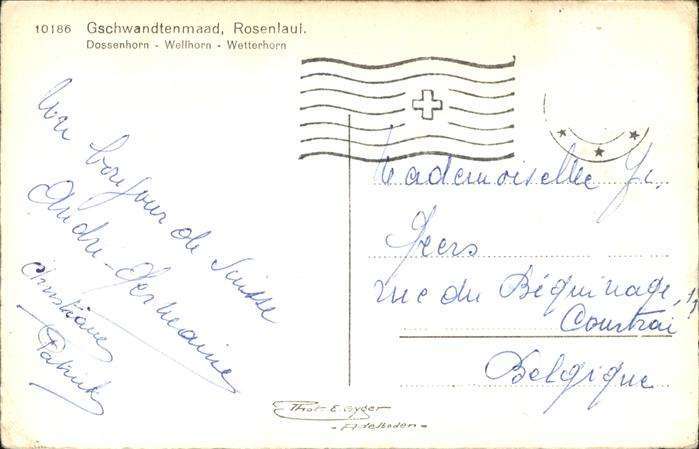 10186 Gschwandtenmaad, Rosenlaui.
Dossenhorn - Wellhorn - Wetterhorn
Un bonjour de Suisse
André - Germaine
Christiane
Patrick
Mademoiselle
Geers
rue du Béguinage,
Courtrai
Belgique
Phot E. Gyger
- Adelboden -